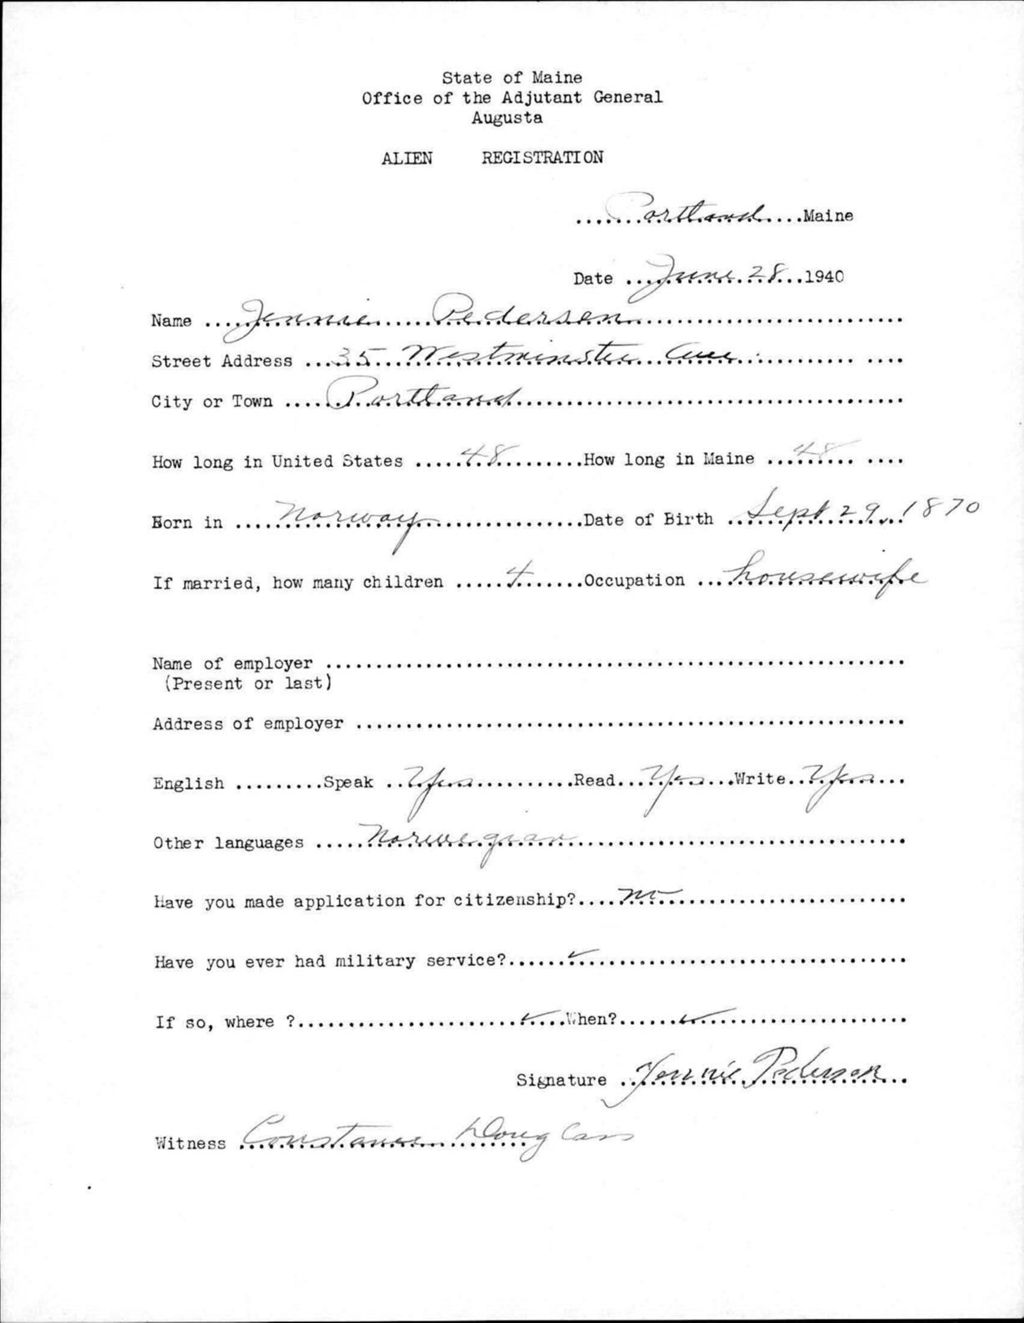 State of Maine
Office of the Adjutant General
Augusta
ALIEN REGISTRATION
.......Portland....Maine
Date ...June 28...1940
Name .....Jennie......Pedersen...........................
Street Address ...35 Westminster Ave...............
City or Town .....Portland.......................................
How long in United States .....48.........How long in Maine ...48... ....
Born in ....Norway................Date of Birth ..Sept 29, 1870
If married, how many children .....4.......Occupation ...housewife
Name of employer ..........................................................
(Present or last)
Address of employer .......................................................
English .........Speak ..Yes..........Read...Yes...Write..Yes...
Other languages .....Norwegian.................................
Have you made application for citizenship?....No.........................
Have you ever had military service?......✓...............................
If so, where ?......................✓....When?......✓....................
Signature ..Jennie Pedersen..
Witness Constance Douglass